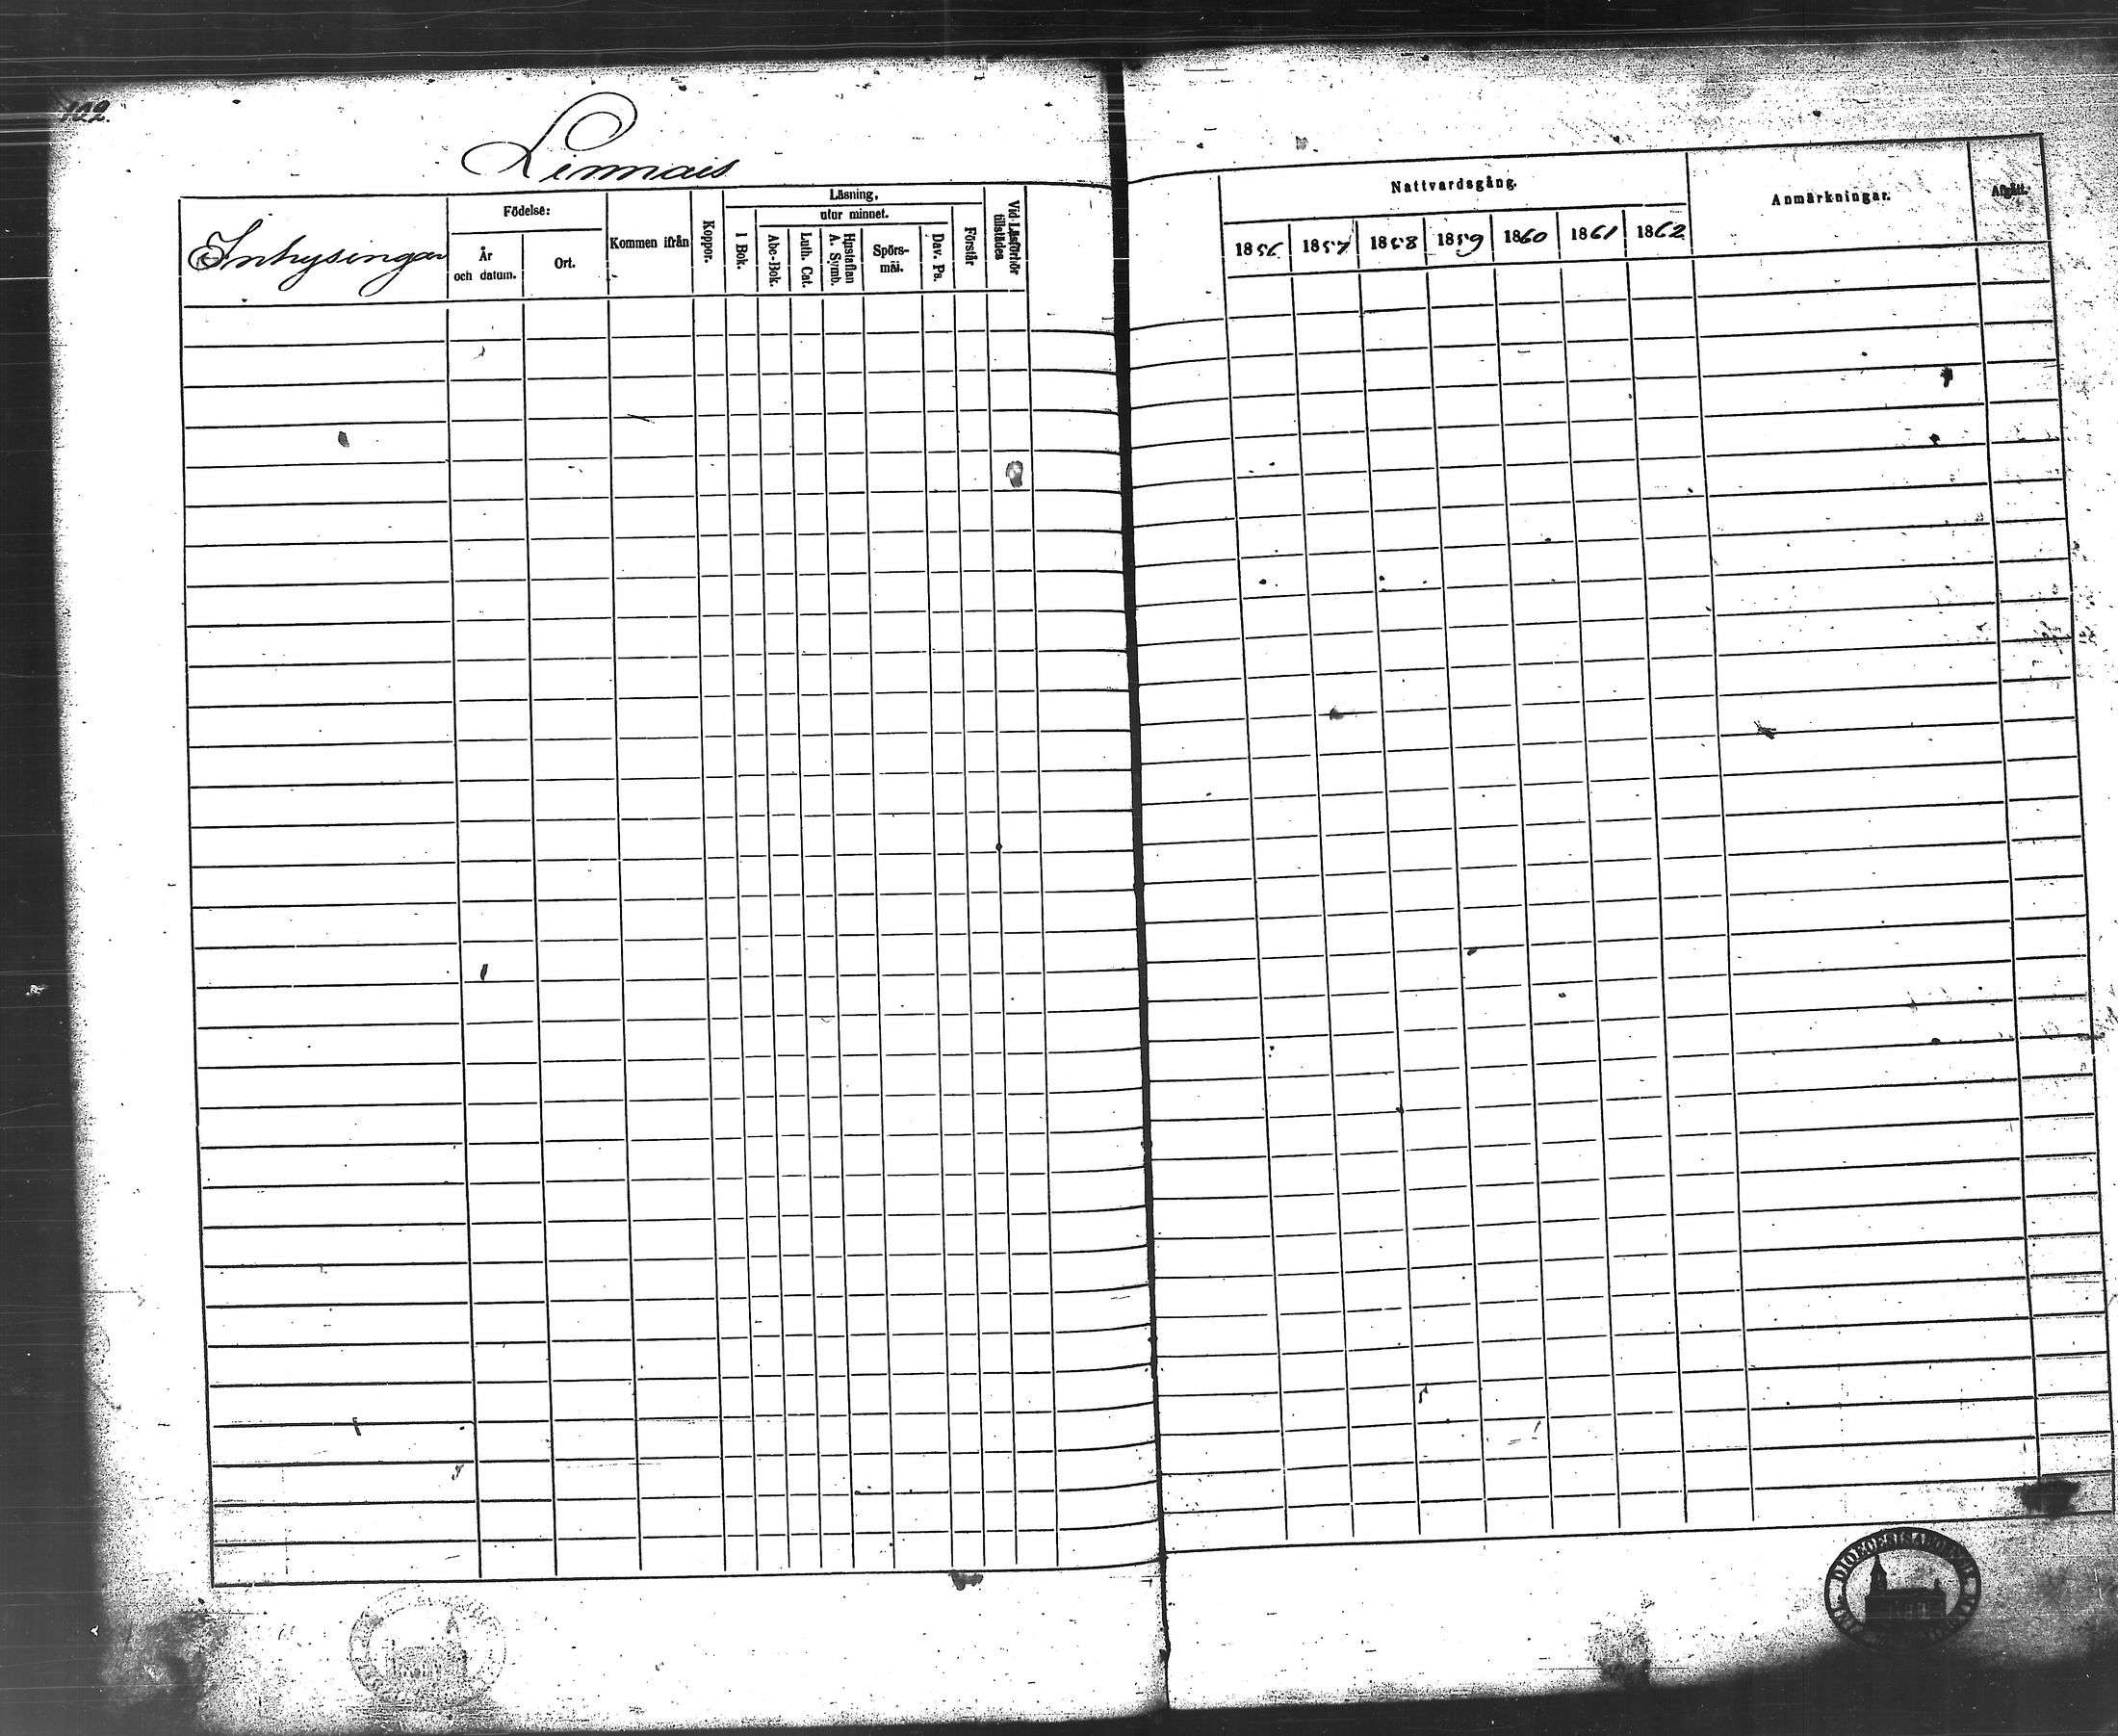 102.
Linnais
Inhysingar
Födelse:
År
och datum.
Ort.
Kommen ifrån
Koppor.
Läsning,
I Bok.
utur minnet.
Abc-Bok.
Luth. Cat.
Hustaflan
A. Symb.
Spörs-
mål.
Dav. Ps.
Förstår
Vid Läsförhör
tillstädes
Nattvardsgång.
1856 1857 1858 1859 1860 1861 1862
Anmärkningar.
Afgått.